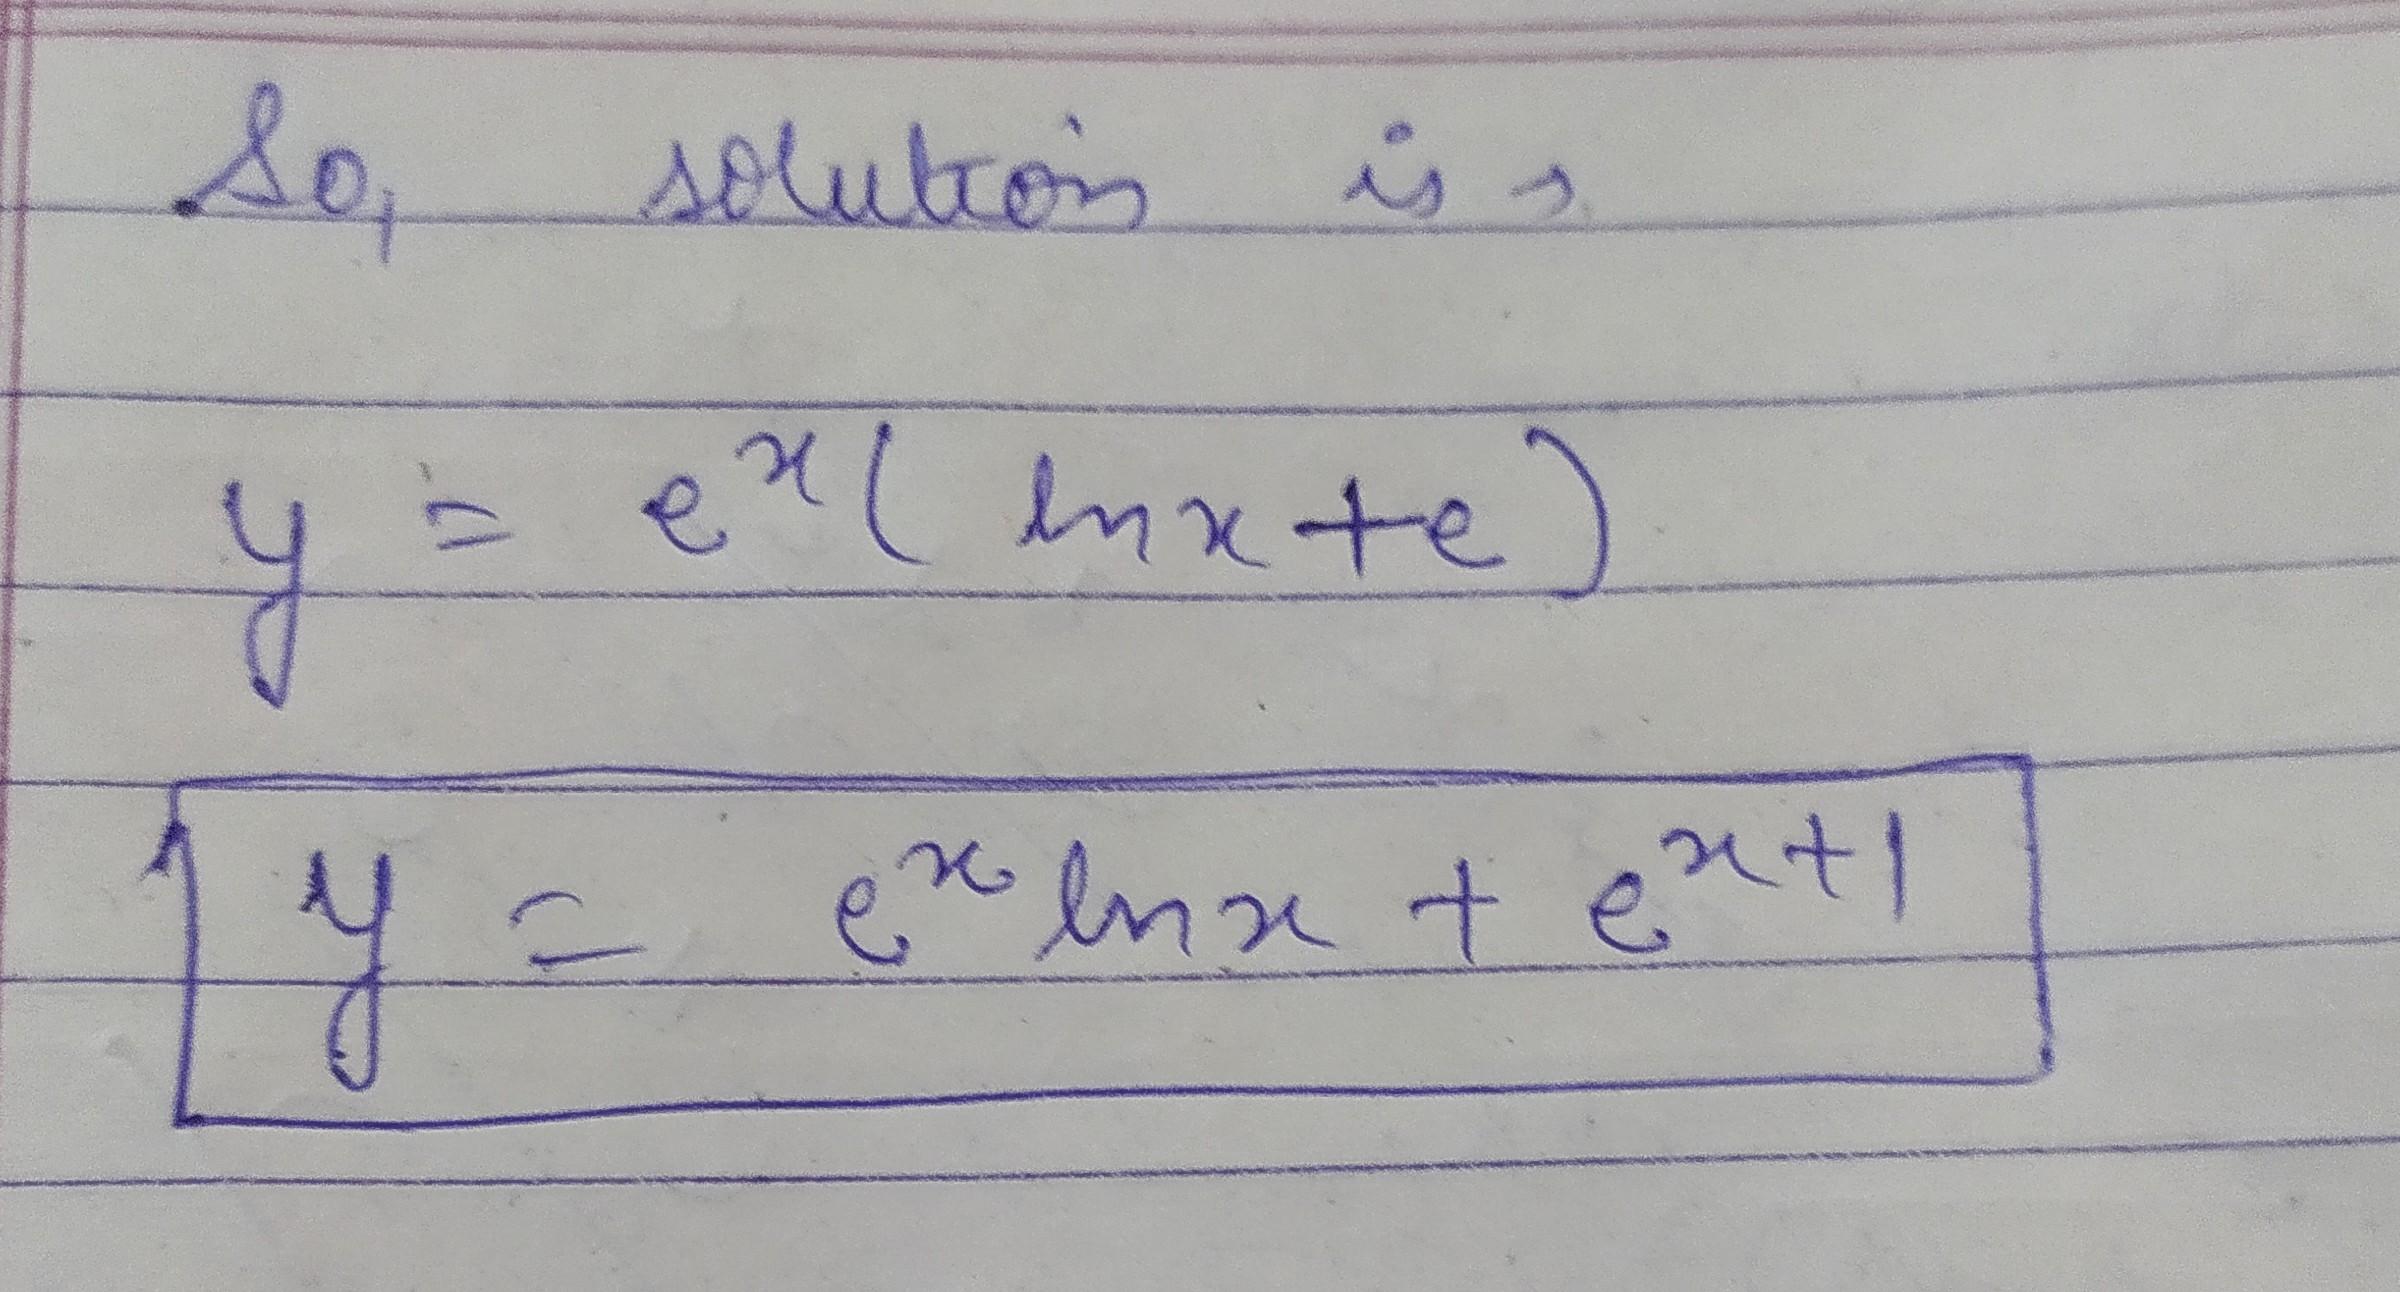 So, solution is
y = e^x ( ln x + e )
y = e^x ln x + e^{x+1}